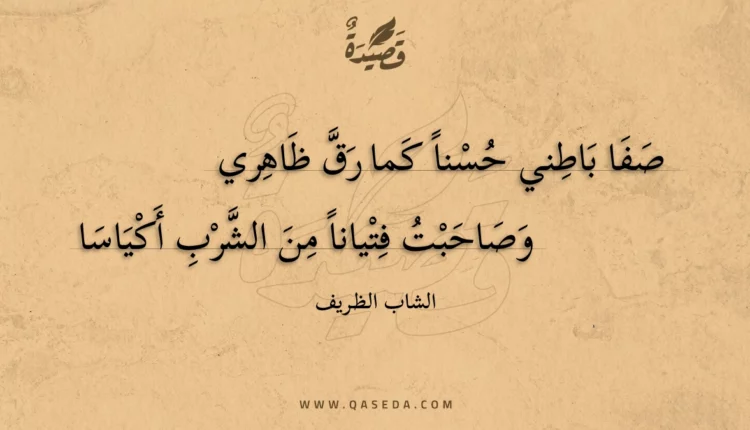 قَصِيْدَةٌ
صَفَا بَاطِني حُسْناً كَما رَقَّ ظَاهِرِي
وَصَاحَبْتُ فِتْياناً مِنَ الشَّرْبِ أَكْيَاسَا
الشاب الظريف
WWW.QASEDA.COM